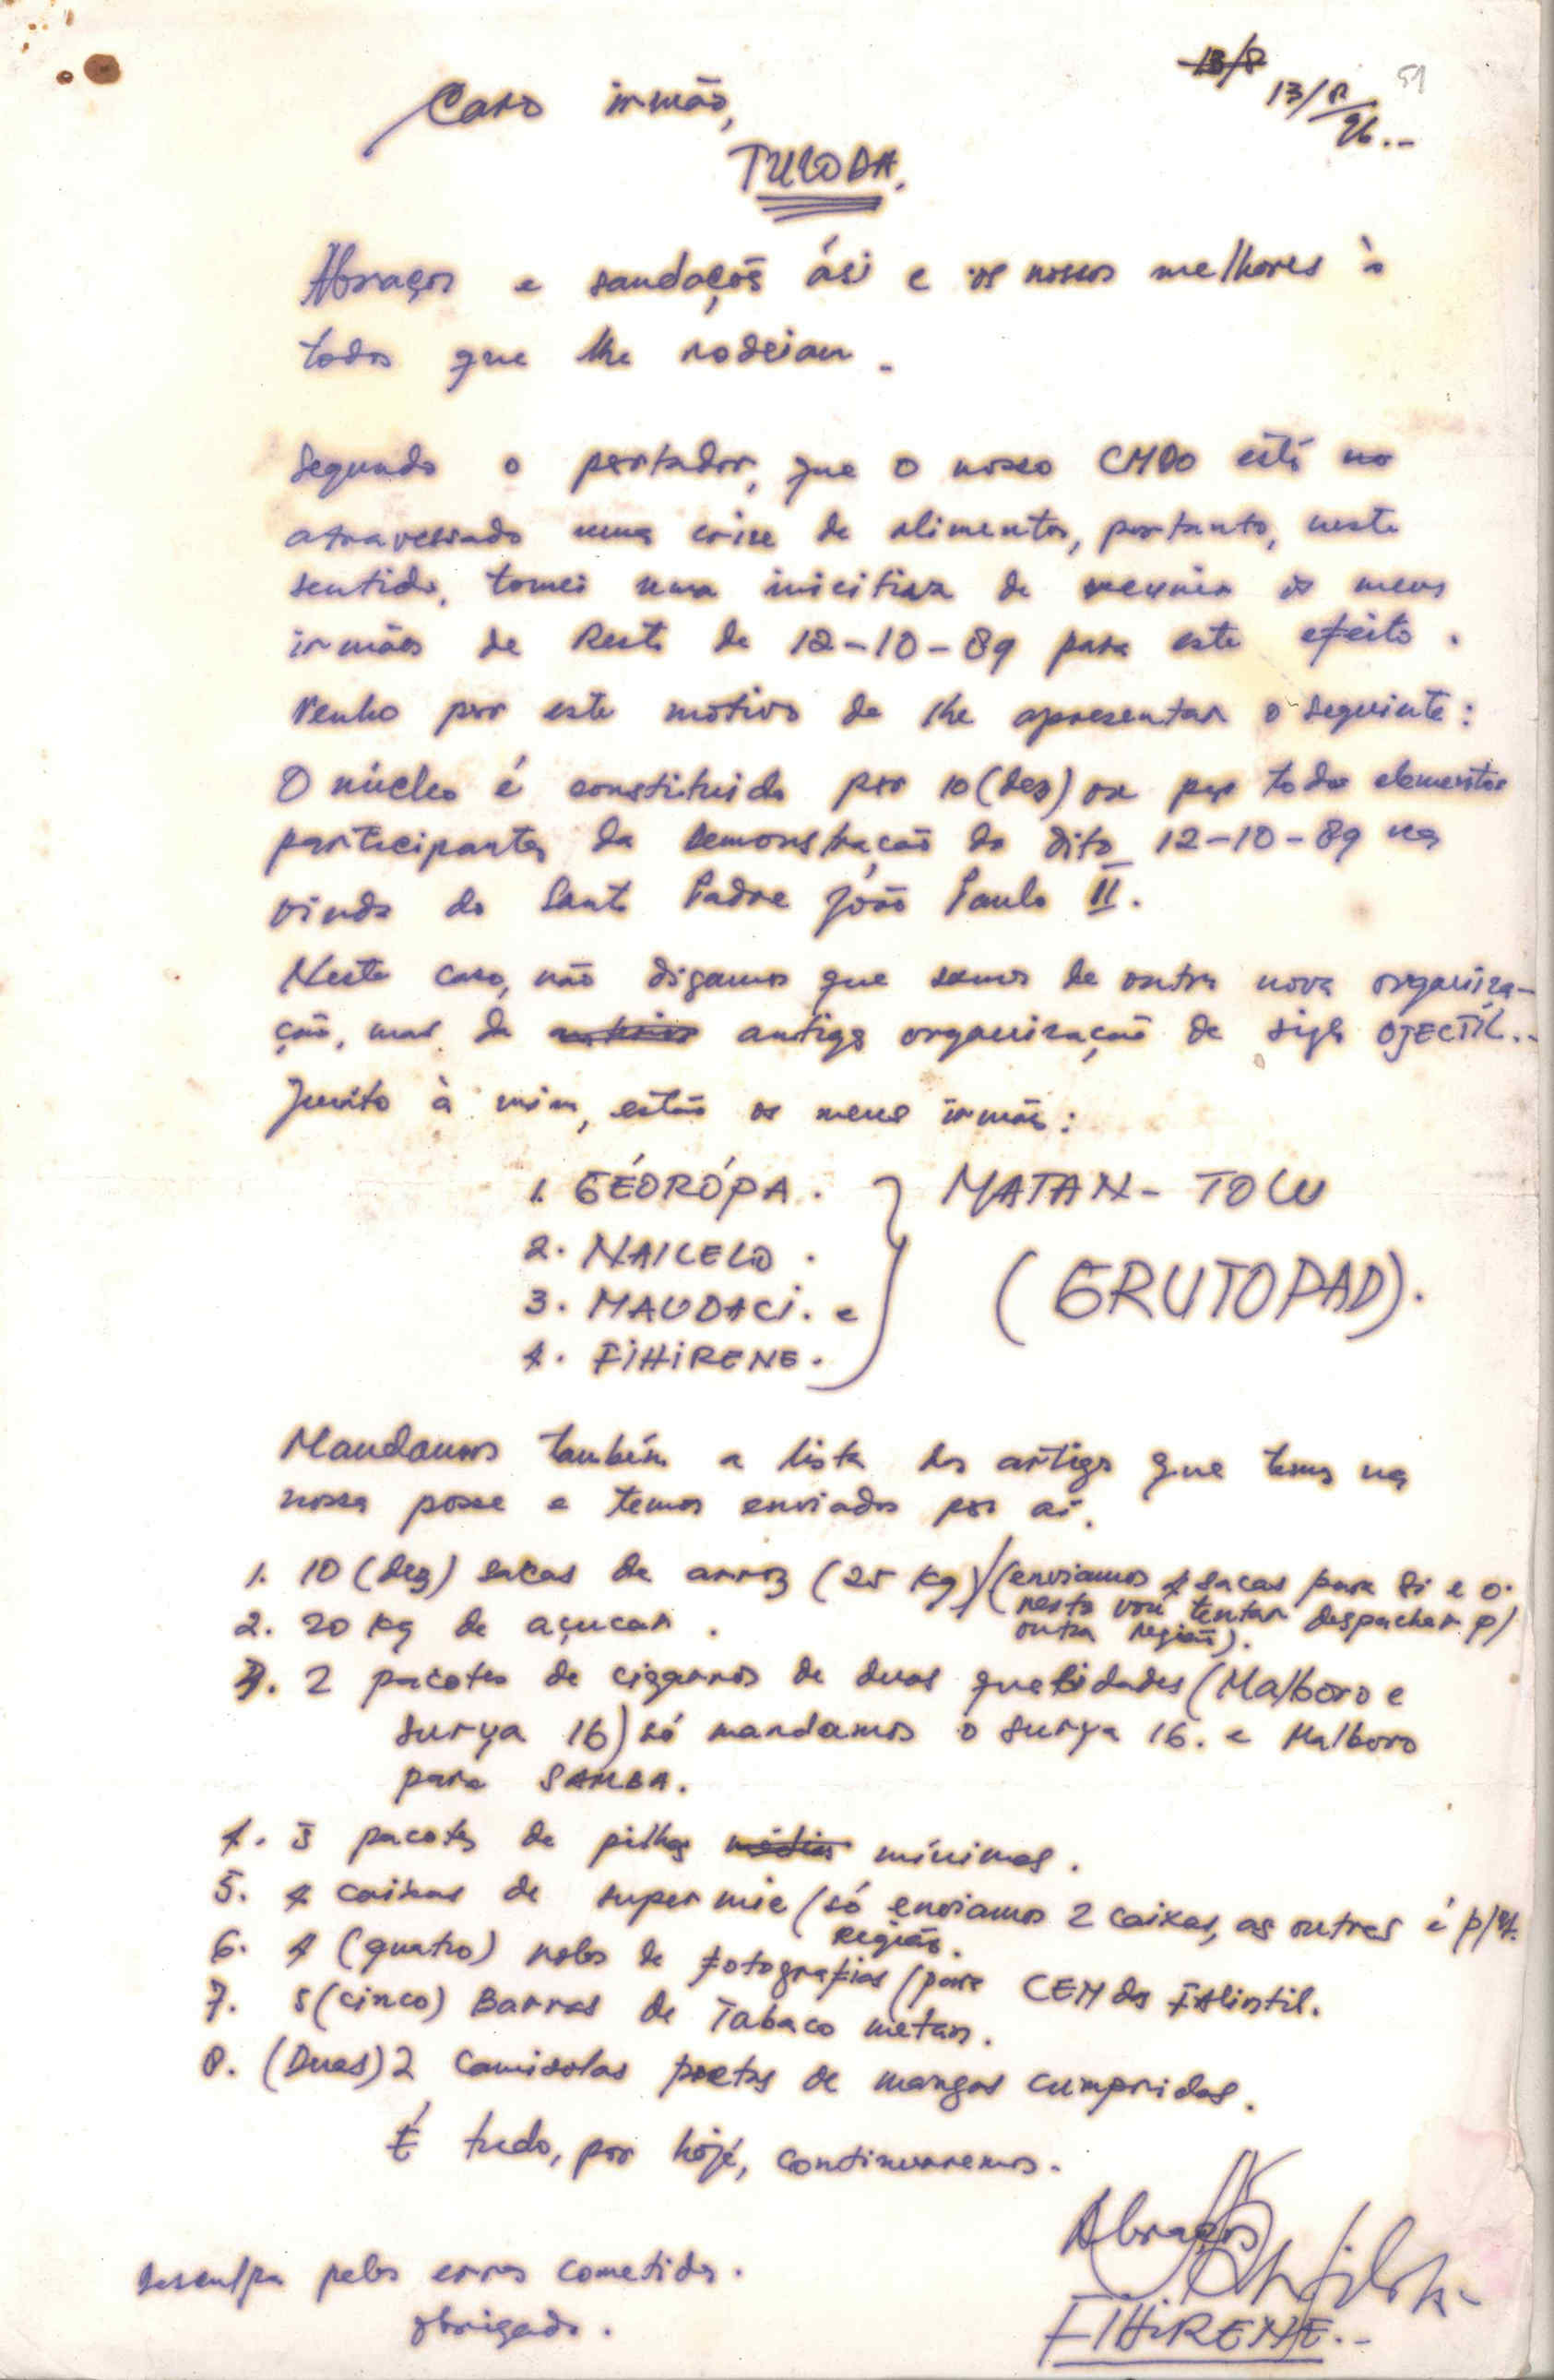 13/8
51
13/8/96..-
Caro irmão,
TULODA.
Abraços e saudações ási e os nossos melhores à
todos que lhe rodeiam.
Segundo o portador, que o nosso CMDO está no
atravessado uma crise de alimentos, portanto, neste
sentido, tomei uma inicitiva de reunir os meus
irmãos de Resto de 12-10-89 para este efeito.
Venho por este motivo de lhe apresentar o seguinte:
O núcleo é constituido por 10 (dez) ou por todos elementos
participantes da Demonstração do dito 12-10-89 na
vinda do Santo Padre João Paulo II.
Neste caso, não digamos que somos de outra nova organiza-
ção, mas da antiga organização de sigla OJECTIL..
Junto à mim, estão os meus irmãos:
1. GÉORÓPA. MATAN-TOLU
2. NAILELO. (GRUTOPAD).
3. MAUDACI. e
4. FIHIRENE.
Mandamos também a lista dos artigo que temos na
nossa posse e temos enviados por aí.
1. 10 (dez) sacas de arroz (25 kg) (enviamos 4 sacas para Si e o
resto vou tentar despachar p/
outra região).
2. 20 kg de açucar.
3. 2 pacotes de ciggaros de duas qualidades (Malboro e
surya 16) só mandamos o surya 16. e Malboro
para SAMBA.
4. 3 pacotes de pilhas médias mínimas.
5. 4 caixas de supermie (só enviamos 2 caixas, as outras é p/
Região.
6. 4 (quatro) rolos de fotografias (para CEM das Falintil.
7. 5 (cinco) Barras de Tabaco metan.
8. (Duas) 2 camisolas pretas de mangas cumpridas.
É tudo, por hojé, continuarremos.
Abraços
Desculpa pelos erros cometidos.
obrigado.
FIHIRENE..-